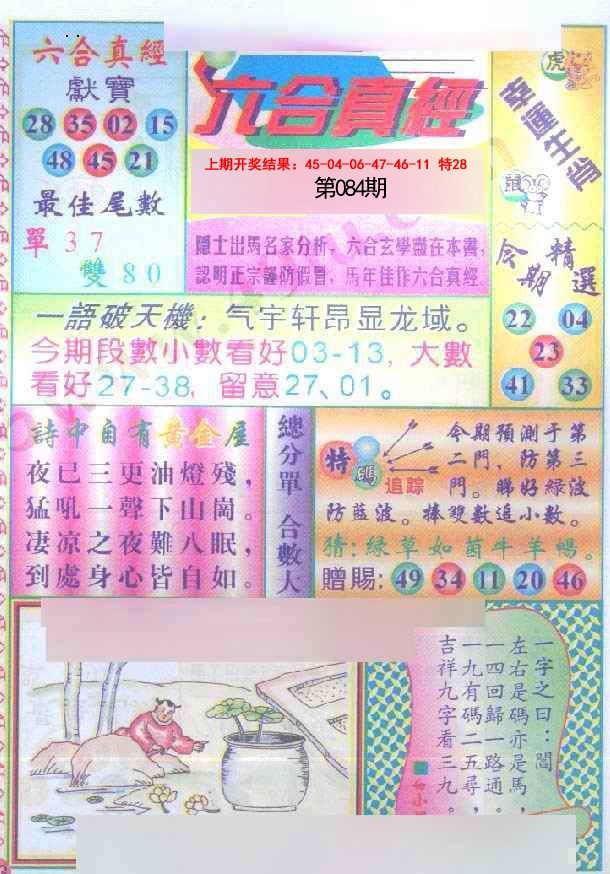 六合真經
獻寶
28 35 02 15
48 45 21
最佳尾數
單37
雙80
六合真經
上期开奖结果：45-04-06-47-46-11 特28
第084期
隱士出馬名家分析，六合玄學盡在本書，
認明正宗謹防假冒，馬年佳作六合真經
虎
幸運生肖
鼠
今期
精選
22 04
23
41 33
一語破天機：气宇轩昂显龙域。
今期段數小數看好03-13，大數
看好27-38，留意27、01。
詩中自有黃金屋
夜已三更油燈殘，
猛吼一聲下山崗。
凄凉之夜難入眠，
到處身心皆自如。
總分單 合數大
特碼
追踪
今期預測于第
二門，防第三
門。睇好綠波
防藍波。捧雙數追小數。
猜：綠草如茵牛羊暢。
贈賜：49 34 11 20 46
一字之曰：閶
左右是碼亦是馬，
一四回歸一路通。
一九有碼二五尋，
吉祥九字看三九。